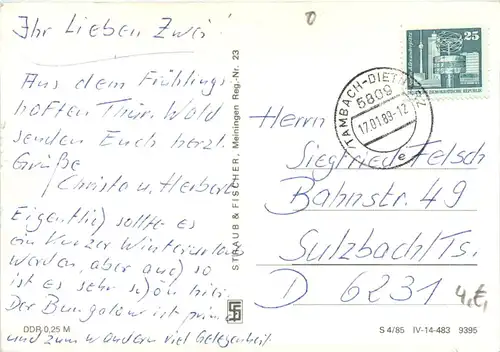 Ihr Lieben Zwei!
Aus dem Frühlings
haften Thür. Wald
senden Euch herzl.
Grüße
Christa u. Herbert
Eigentlich sollte es
ein kurzer Winterurlaub
werden, aber auch so
ist es sehr schön hier.
Der Bungalow ist prima
und zum wandern viel Gelegenheit
DDR 0,25 M
STRAUB & FISCHER, Meiningen Reg.-Nr. 23
0
25
DEUTSCHE DEMOKRATISCHE REPUBLIK
TAMBACH-DIETHARZ
5809
17.01.89-12
e
Herrn
Siegfried Felsch
Bahnstr. 49
Sulzbach/Ts.
D 6231
4,€,
S 4/85 IV-14-483 9395